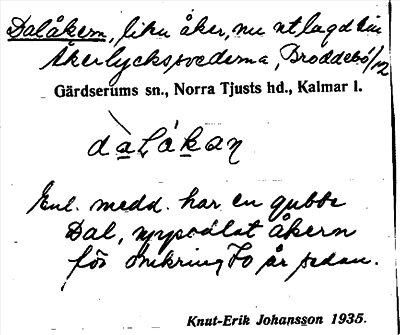 Dalåkern, liten åker, nu utlagd till
Åkerlyckspvederna, Broddebo 1/12
Gärdserums sn., Norra Tjusts hd., Kalmar l.
dàLåkaɳ
Enl. medd. har en gubbe
Dal, uppodlat åkern
för omkring 70 år sedan.
Knut-Erik Johansson 1935.